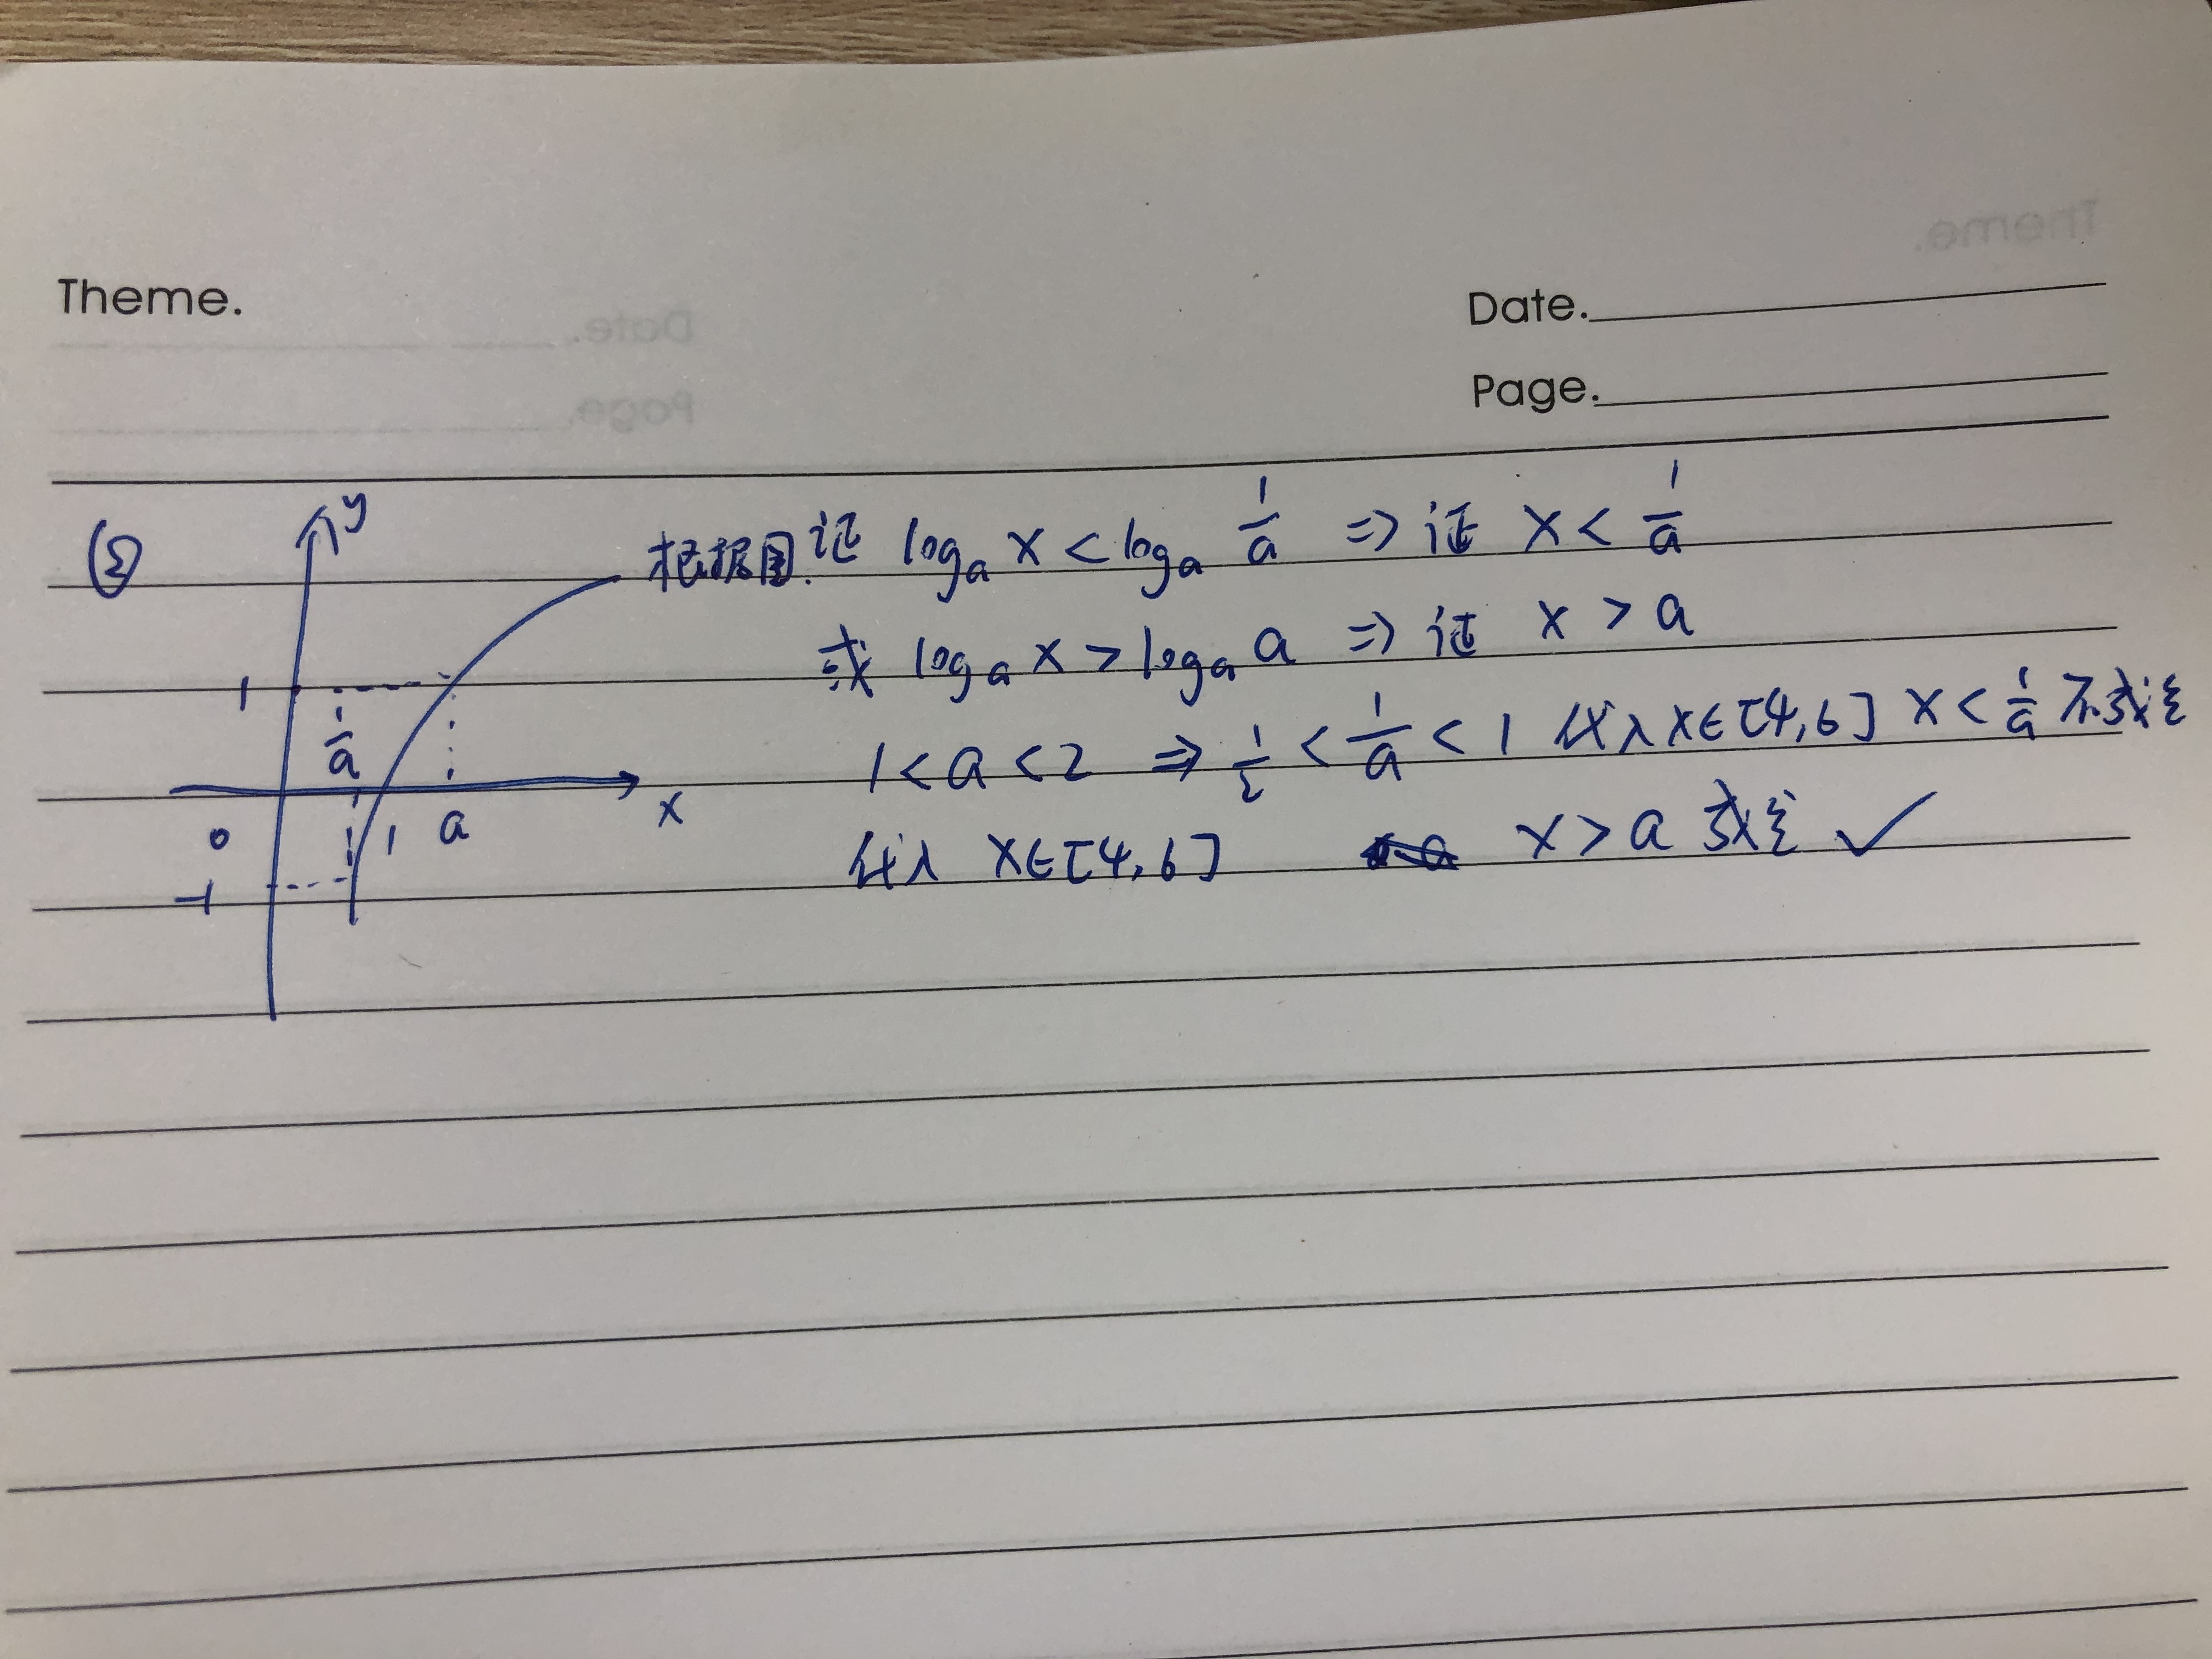 Theme.
Date.
Page.
② y 根据图.证 logₐ x < logₐ 1/a ⇒ 证 x < 1/a
或 logₐ x > logₐ a ⇒ 证 x > a
1
1/a
1 < a < 2 ⇒ 1/2 < 1/a < 1 代入 x∈[4,6] x < 1/a 不成立
0 1 a x
代入 x∈[4,6] x > a 成立 ✓
-1